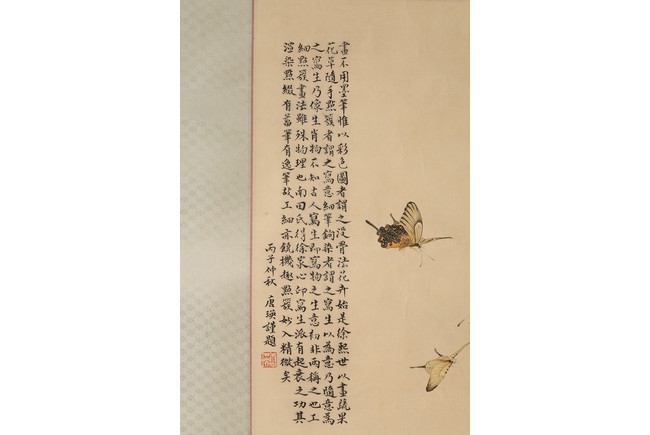 畫不用墨筆惟以彩色圖者謂之沒骨法花卉始是徐熙世以畫蔬果
花草隨手點簇者謂之寫意細筆鉤染者謂之寫生以為意乃隨意為
之寫生乃像生肖物不知古人寫生即寫物之生意初非兩稱之也工
細點簇畫法雖殊物理也南田氏得徐家心印寫生派有起衰之功其
渲染點綴有蓄筆有逸筆故工細亦饒機趣點簇妙入精微矣
丙子仲秋 唐瑛謹題